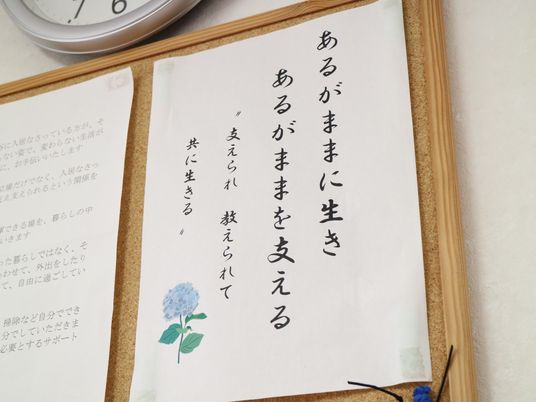 あるがままに生き
あるがままを支える
〝支えられ 教えられて
共に生きる〟
に入居なさっている方が、そ
ない姿で、変わらない生活が
に、お手伝いいたします
場だけでなく、入居なさっ
支え支えられるという関係を
できる場を、暮らしの中
いきます
った暮らしではなく、そ
わせて、外出をしたり
て、自由に過ごしてい
掃除など自分ででき
分でしていただきま
必要とするサポート